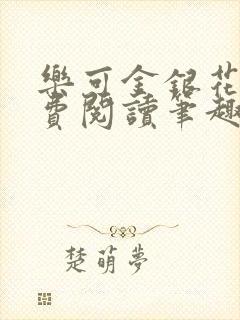 樂可金銀花
費閱讀筆趣
楚萌夢